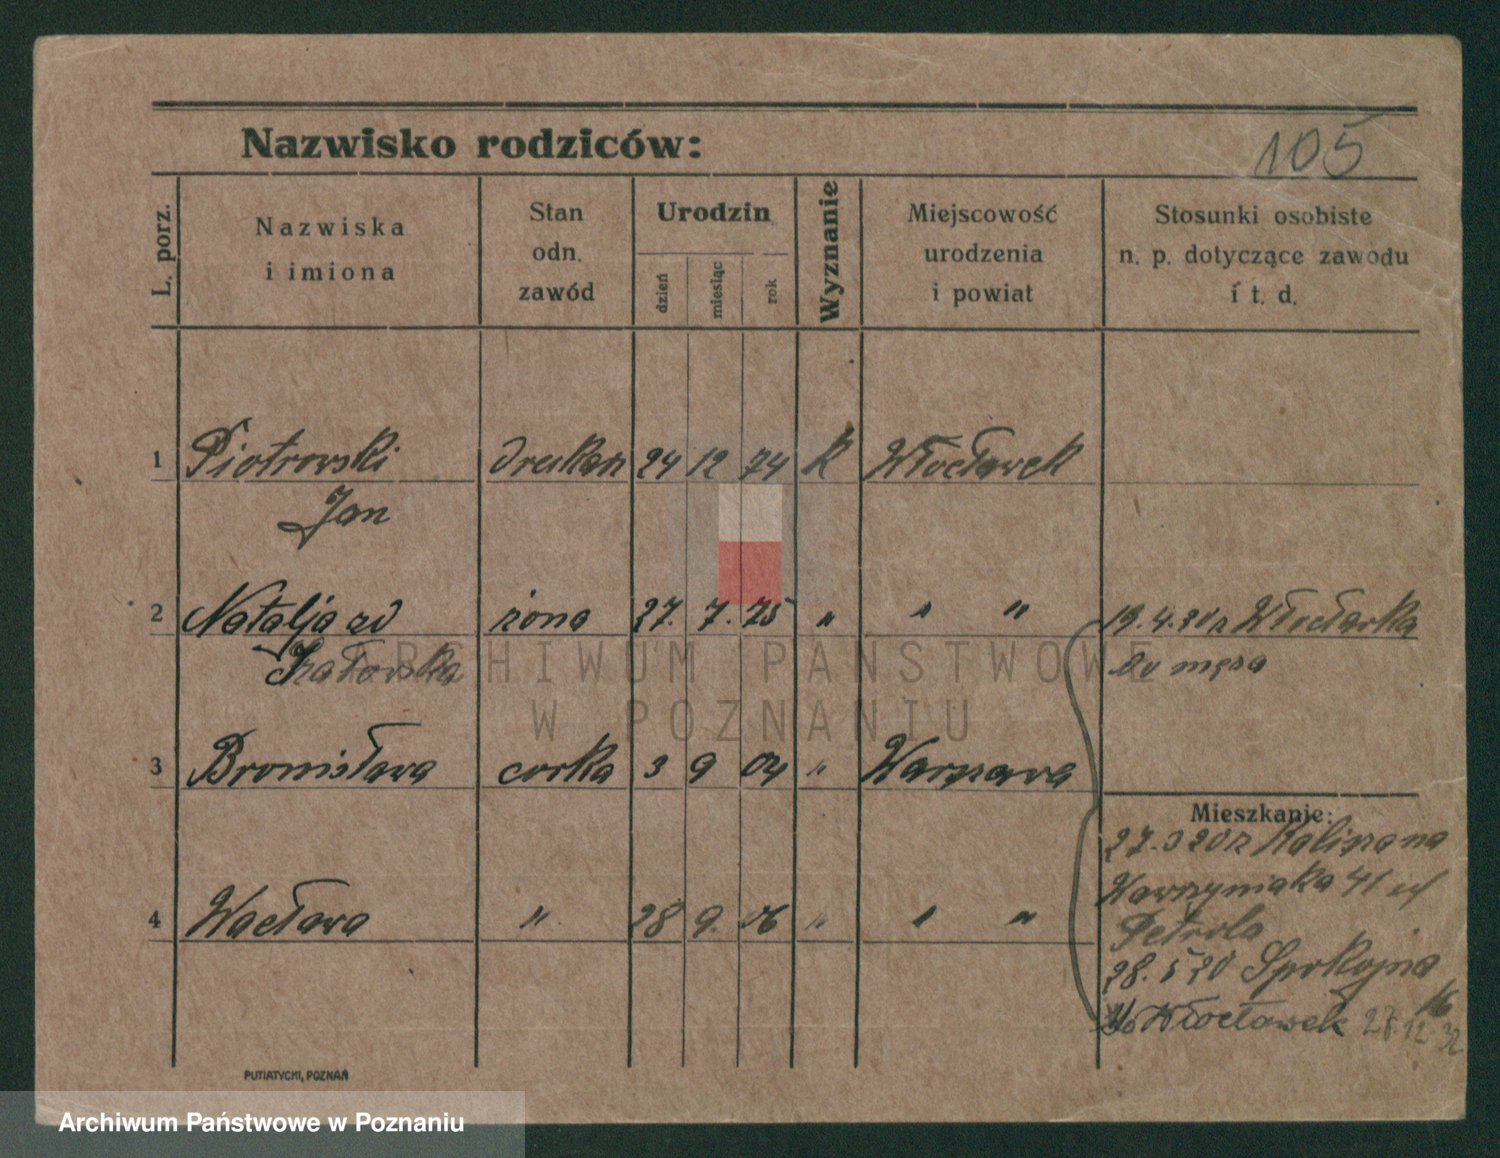 Nazwisko rodziców:
105
L. porz.
Nazwiska
i imiona
Stan
odn.
zawód
Urodzin
dzień
miesiąc
rok
Wyznanie
Miejscowość
urodzenia
i powiat
Stosunki osobiste
n. p. dotyczące zawodu
i t. d.
1 Piotrowski drukarz 24 12 74 k Włocławek
Jan
2 Natalja zd żona 27. 7. 75 " " " 19.4.20 z Włocławka
do męża
3 Bronisława corka 3 9 04 " Warszawa
Mieszkanie:
27.3 20 z Kalisza na
Wawrzyniaka 41 u
28. 5 20 Spokojna
16
4 Wacława " 28 9. 06 " " "
Włocławek 27.12 32
PUTIATYCKI, POZNAŃ
ARCHIWUM PAŃSTWOWE
W POZNANIU
Archiwum Państwowe w Poznaniu